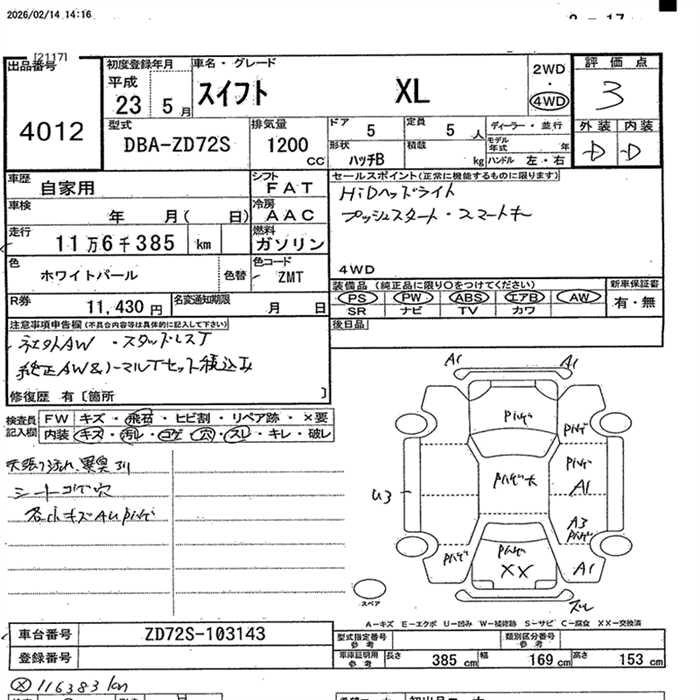 2026/02/14 14:16
[2117]
出品番号
4012
初度登録年月
平成
23 5 月
車名・グレード
スイフト XL
2WD
・
4WD
評価点
3
外装 内装
D D
型式
DBA-ZD72S
排気量
1200 CC
ドア 5
定員 5 人
形状 ハッチB
積載 kg
ディーラー・並行
モデル年式 年
ハンドル 左・右
車歴 自家用
シフト FAT
車検 年 月( 日)
冷房 AAC
走行 11万6千385 km
燃料 ガソリン
色 ホワイトパール 色替
色コード ZMT
R券 11,430 円
名変通知期限 月 日
セールスポイント(正常に機能するものに限ります)
HiDヘッドライト
プッシュスタート・スマートキー
4WD
装備品 (純正品に限り○をつけてください)
PS PW ABS エアB AW
SR ナビ TV カワ
新車保証書
有・無
後日品
注意事項申告欄(不具合内容等は具体的に記入して下さい)
社外AW ・スタッドレスT
純正AW&ノーマルTセット積込み
修復歴 有〔箇所 〕
検査員記入欄
FW キズ・飛石・ヒビ割・リペア跡・×要
内装 キズ・汚れ・コゲ・穴・スレ・キレ・破レ
天張り汚れ、異臭有
シートコゲ穴
各小キズAUハゲ
A1 A1
U3
A1
A3
XX
A1
スレ
スペア
A－キズ E－エクボ U－凹み W－補修跡 S－サビ C－腐食 XX－交換済
車台番号 ZD72S-103143
登録番号
型式指定番号 参考
類別区分番号 参考
車庫証明用 参考
長さ 385 cm 幅 169 cm 高さ 153 cm
Ⓧ 116383 km